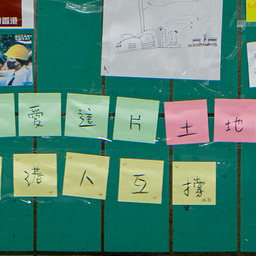 香港
愛這片土地
港人互撐